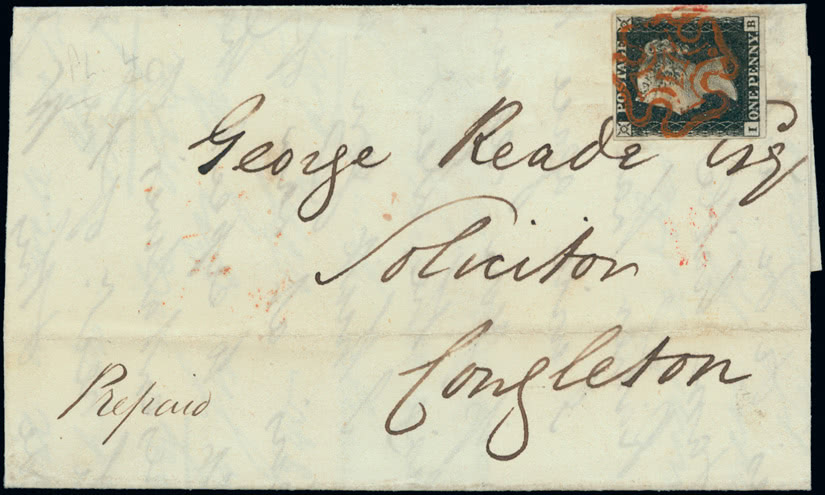 POSTAGE
ONE PENNY
I
B
George Reade Esq
Solicitor
Congleton
Prepaid